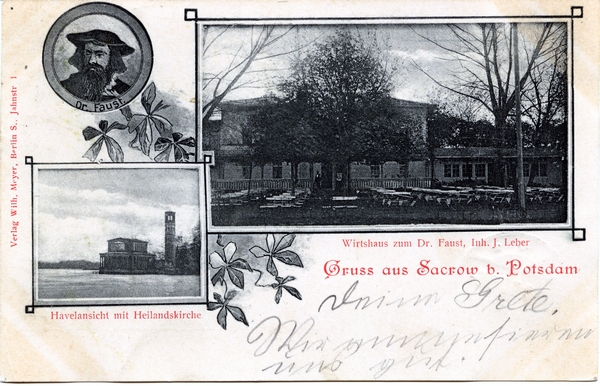 Dr. Faust.
Verlag Wilh. Meyer, Berlin S., Jahnstr 1
Wirtshaus zum Dr. Faust, Inh. J. Leber
Gruss aus Sacrow b. Potsdam
Havelansicht mit Heilandskirche
Deine Grete.
Wir amuesieren
uns gut.